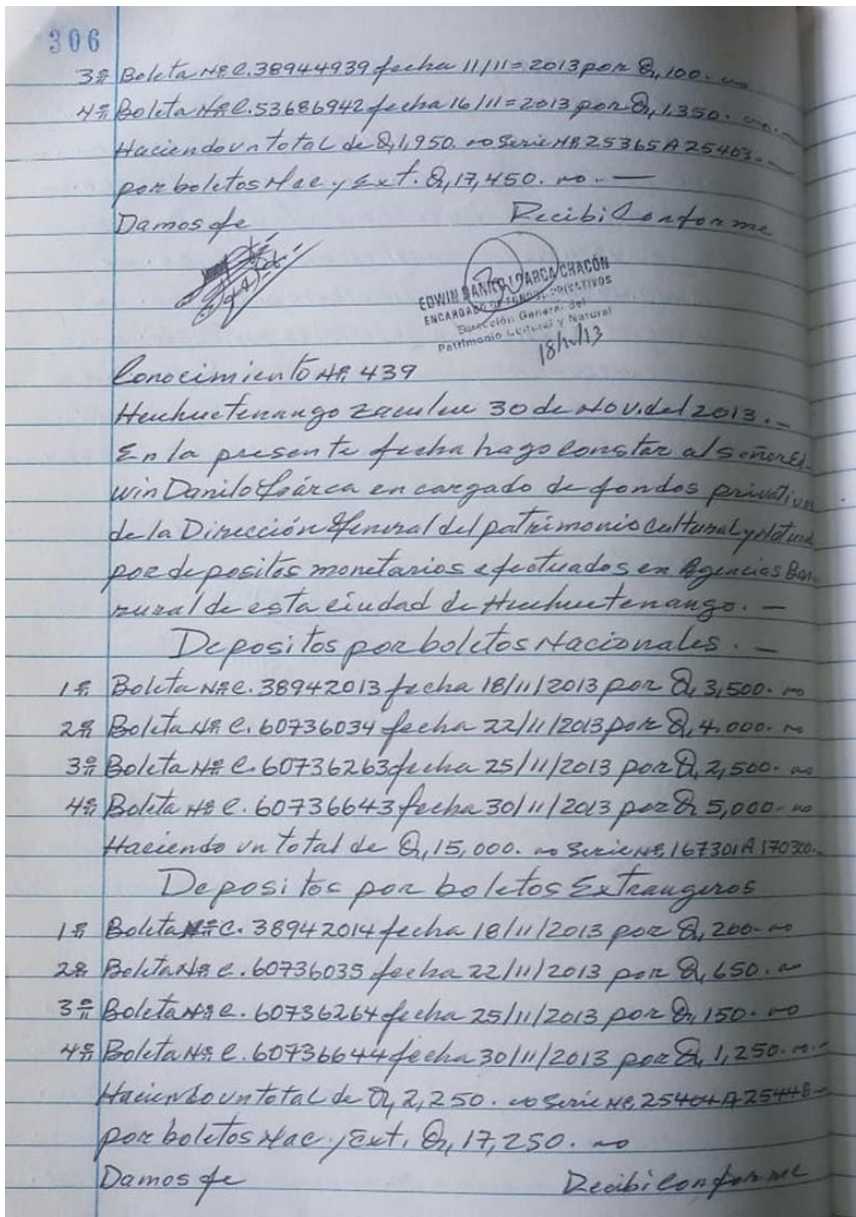 306
3º Boleta Nº C. 38944939 fecha 11/11=2013 por Q, 100. oo
4º Boleta Nº C. 53686942 fecha 16/11=2013 por Q, 1.350. oo.-
Haciendo un total de Q, 1,950. oo Serie Nº 25365 A 25403.-
por boletos Nac. y Ext. Q, 17,450. oo. —
Damos fe Recibi Conforme
EDWIN DANILO LOARCA CHACÓN
ENCARGADO DE FONDOS PRIVATIVOS
Dirección General del
Patrimonio Cultural y Natural
18/11/13
Conocimiento Nº 439
Huehuetenango Zaculeu 30 de Nov. del 2013. -
En la presente fecha hago constar al señor Ed-
win Danilo Loárca encargado de fondos privativos
de la Dirección General del patrimonio Cultural y Natural
por depositos monetarios efectuados en Agencias Ban-
rural de esta ciudad de Huehuetenango. —
Depositos por boletos Nacionales. —
1º Boleta Nº C. 38942013 fecha 18/11/2013 por Q, 3,500. oo
2º Boleta Nº C. 60736034 fecha 22/11/2013 por Q, 4.000. oo
3º Boleta Nº C. 60736263 fecha 25/11/2013 por Q, 2,500. oo
4º Boleta Nº C. 60736643 fecha 30/11/2013 por Q, 5,000. oo
Haciendo un total de Q, 15,000. oo Serie Nº, 167301 A 170300.
Depositos por boletos Extrangeros
1º Boleta Nº C. 38942014 fecha 18/11/2013 por Q, 200. oo
2º Boleta Nº C. 60736035 fecha 22/11/2013 por Q, 650. oo
3º Boleta Nº C. 60736264 fecha 25/11/2013 por Q, 150. oo
4º Boleta Nº C. 60736644 fecha 30/11/2013 por Q, 1,250. oo.-
Haciendo un total de Q, 2,250. oo Serie Nº, 25404 A 25448 -
por boletos Nac. y Ext. Q, 17,250. oo
Damos fe Recibi Conforme